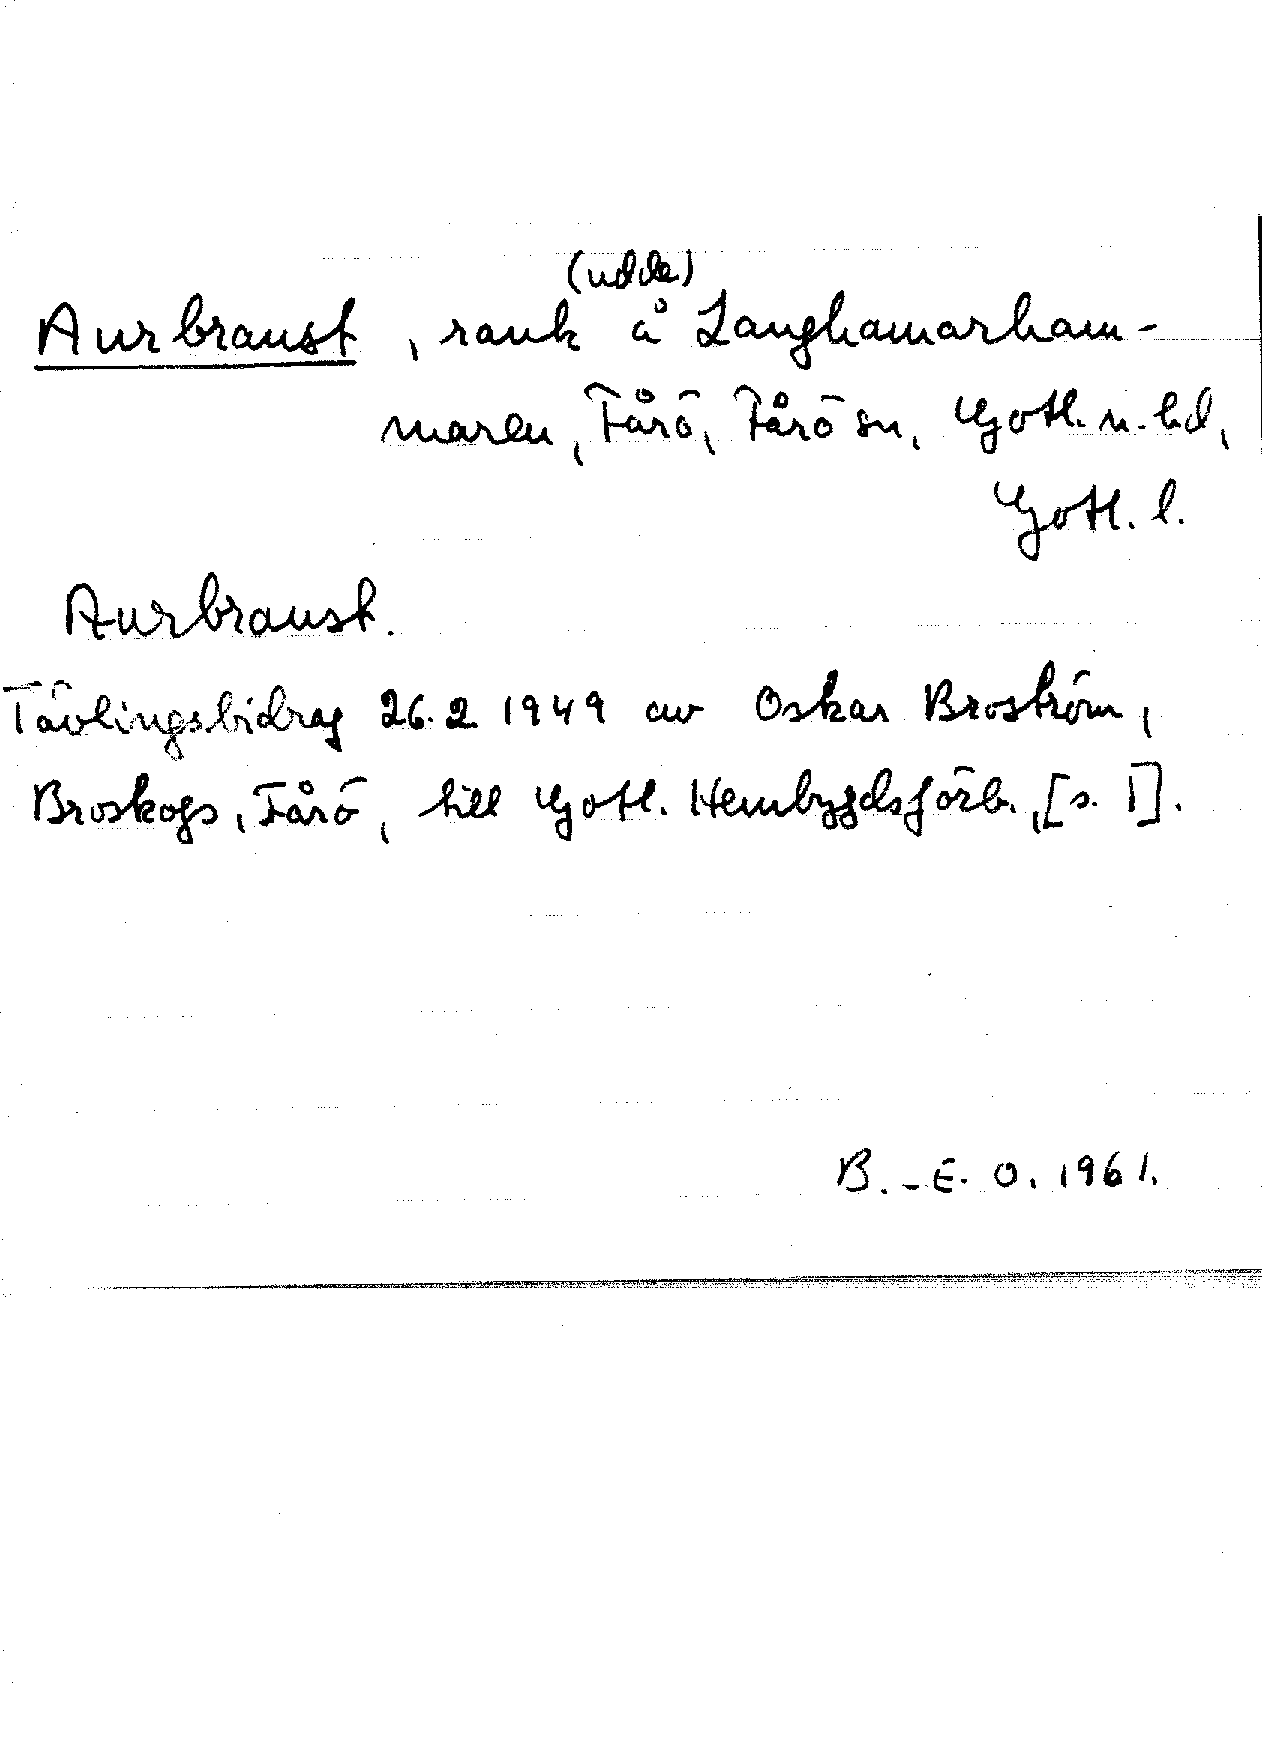 (udde)
Aurbraust, rauk å Langhamarham-
maren, Fårö, Fårö sn, Gotl. n. hd,
Gotl. l.
Aurbraust.
Tävlingsbidrag 26.2 1949 av Oskar Broström,
Broskogs, Fårö, till Gotl. Hembygdsförb., [s. 1].
B.-E. O. 1961.